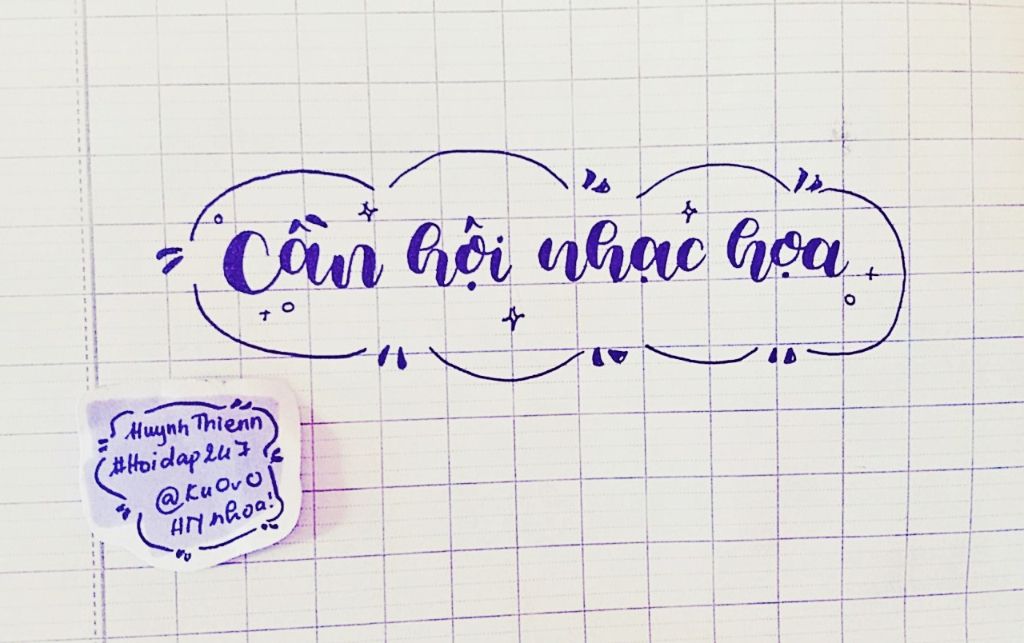 Cần hội nhạc họa
Huynh Thienn
#Hoidap247
@KuOvO
HN nhoa!